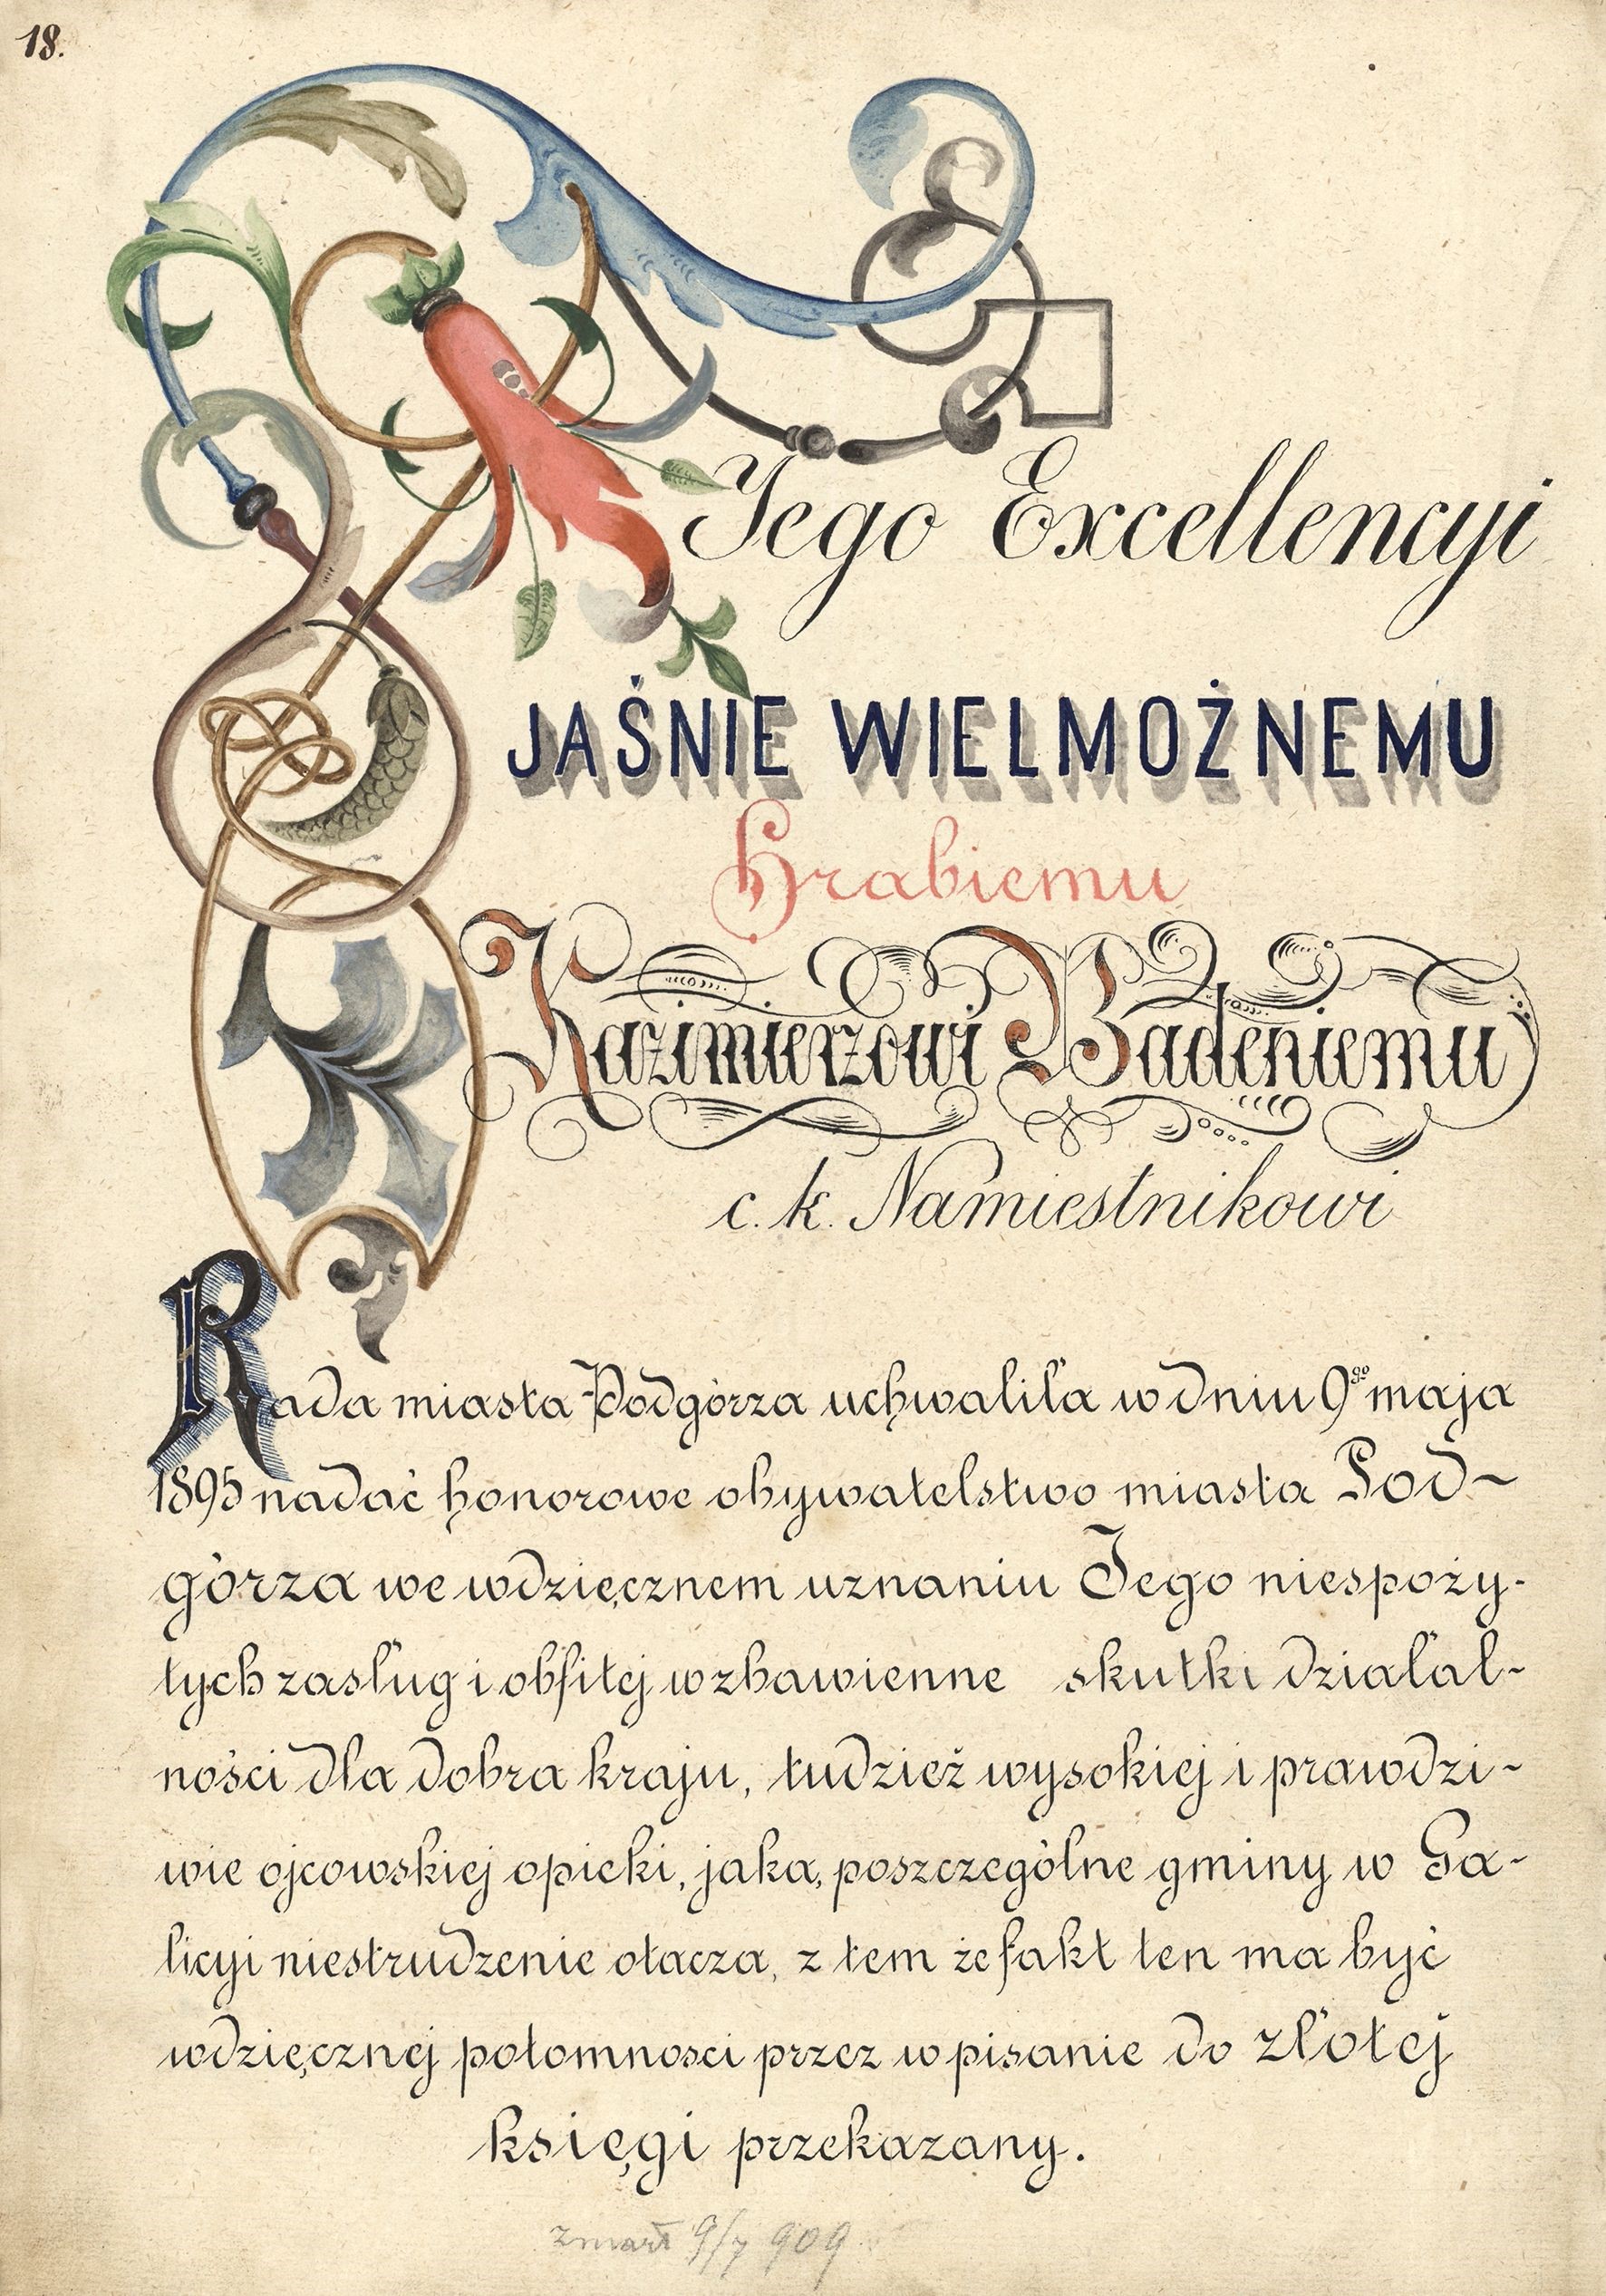 18.
Jego Excellencyi
JAŚNIE WIELMOŻNEMU
Hrabiemu
Kazimierzowi Badeniemu
c. k. Namiestnikowi
Rada miasta Podgórza uchwaliła w dniu 9go maja
1895 nadać honorowe obywatelstwo miasta Pod-
górza we wdzięcznem uznaniu Jego niespoży-
tych zasług i obfitej w zbawienne skutki działal-
ności dla dobra kraju, tudzież wysokiej i prawdzi-
wie ojcowskiej opieki, jaką poszczególne gminy w Ga-
licyi niestrudzenie otacza, z tem że fakt ten ma być
wdzięcznej potomności przez wpisanie do złotej
księgi przekazany.
zmarł 9/7 909